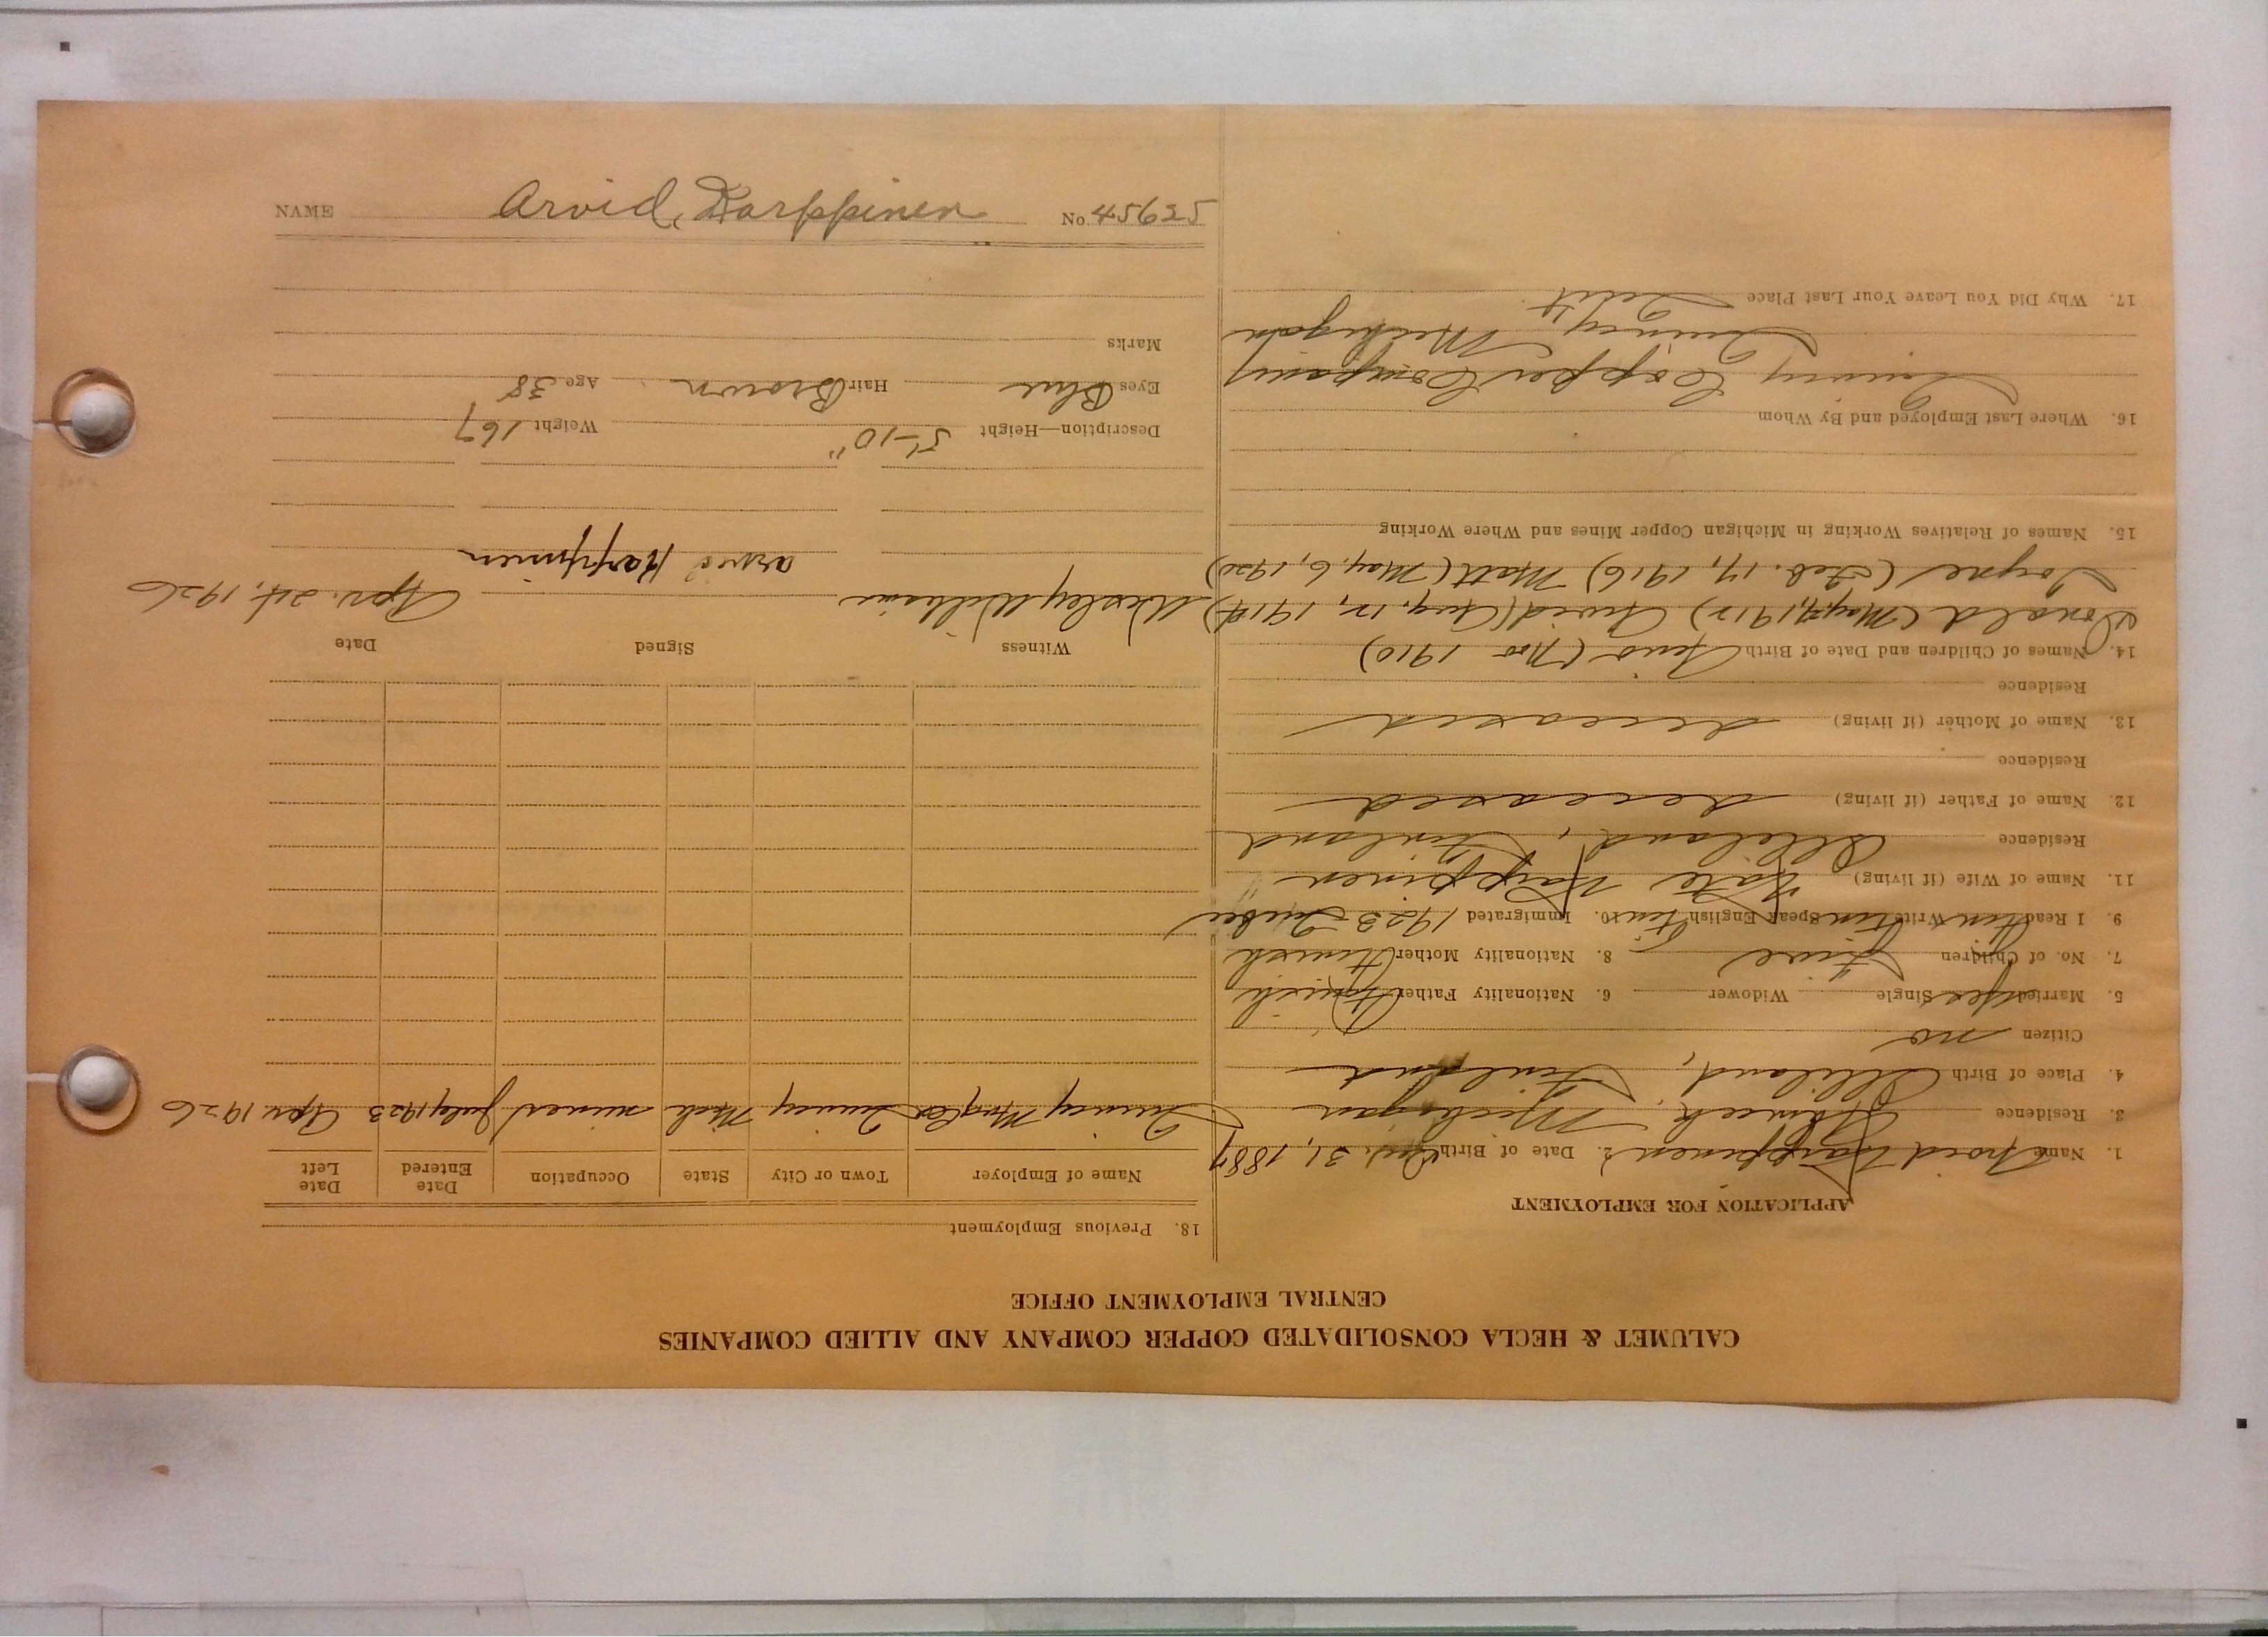 CALUMET & HECLA CONSOLIDATED COPPER COMPANY AND ALLIED COMPANIES
CENTRAL EMPLOYMENT OFFICE
APPLICATION FOR EMPLOYMENT
1. Name Arvid Karppinen 2. Date of Birth 31, 1887
3. Residence Hancock, Michigan
4. Place of Birth Finland
Citizen no
5. Married yes Single Widower 6. Nationality Father Finnish
7. No. of Children Five 8. Nationality Mother Finnish
9. I Read Finn Write Finn Speak English Finn 10. Immigrated 1923 Quebec
11. Name of Wife (if living) Kate Karppinen
Residence Finland
12. Name of Father (if living) deceased
Residence
13. Name of Mother (if living) deceased
Residence
14. Names of Children and Date of Birth (Nov 1910)
Donald (May 4, 1912) Arvid (Aug. 12, 1914)
Toyne (Feb. 17, 1916) Matt (May 6, 1920)
15. Names of Relatives Working in Michigan Copper Mines and Where Working
16. Where Last Employed and By Whom
Quincy Copper Company
Quincy Michigan
17. Why Did You Leave Your Last Place Quit
18. Previous Employment
Name of Employer Town or City State Occupation Date Entered Date Left
Quincy Mng Co Quincy Mich miner July 1923 Apr. 1926
Witness Signed Date
Wesley Williams Arvid Karppinen Apr. 24, 1926
Description—Height 5'-10" Weight 167
Eyes Blue Hair Brown Age 38
Marks
NAME Arvid, Karppinen No. 45625